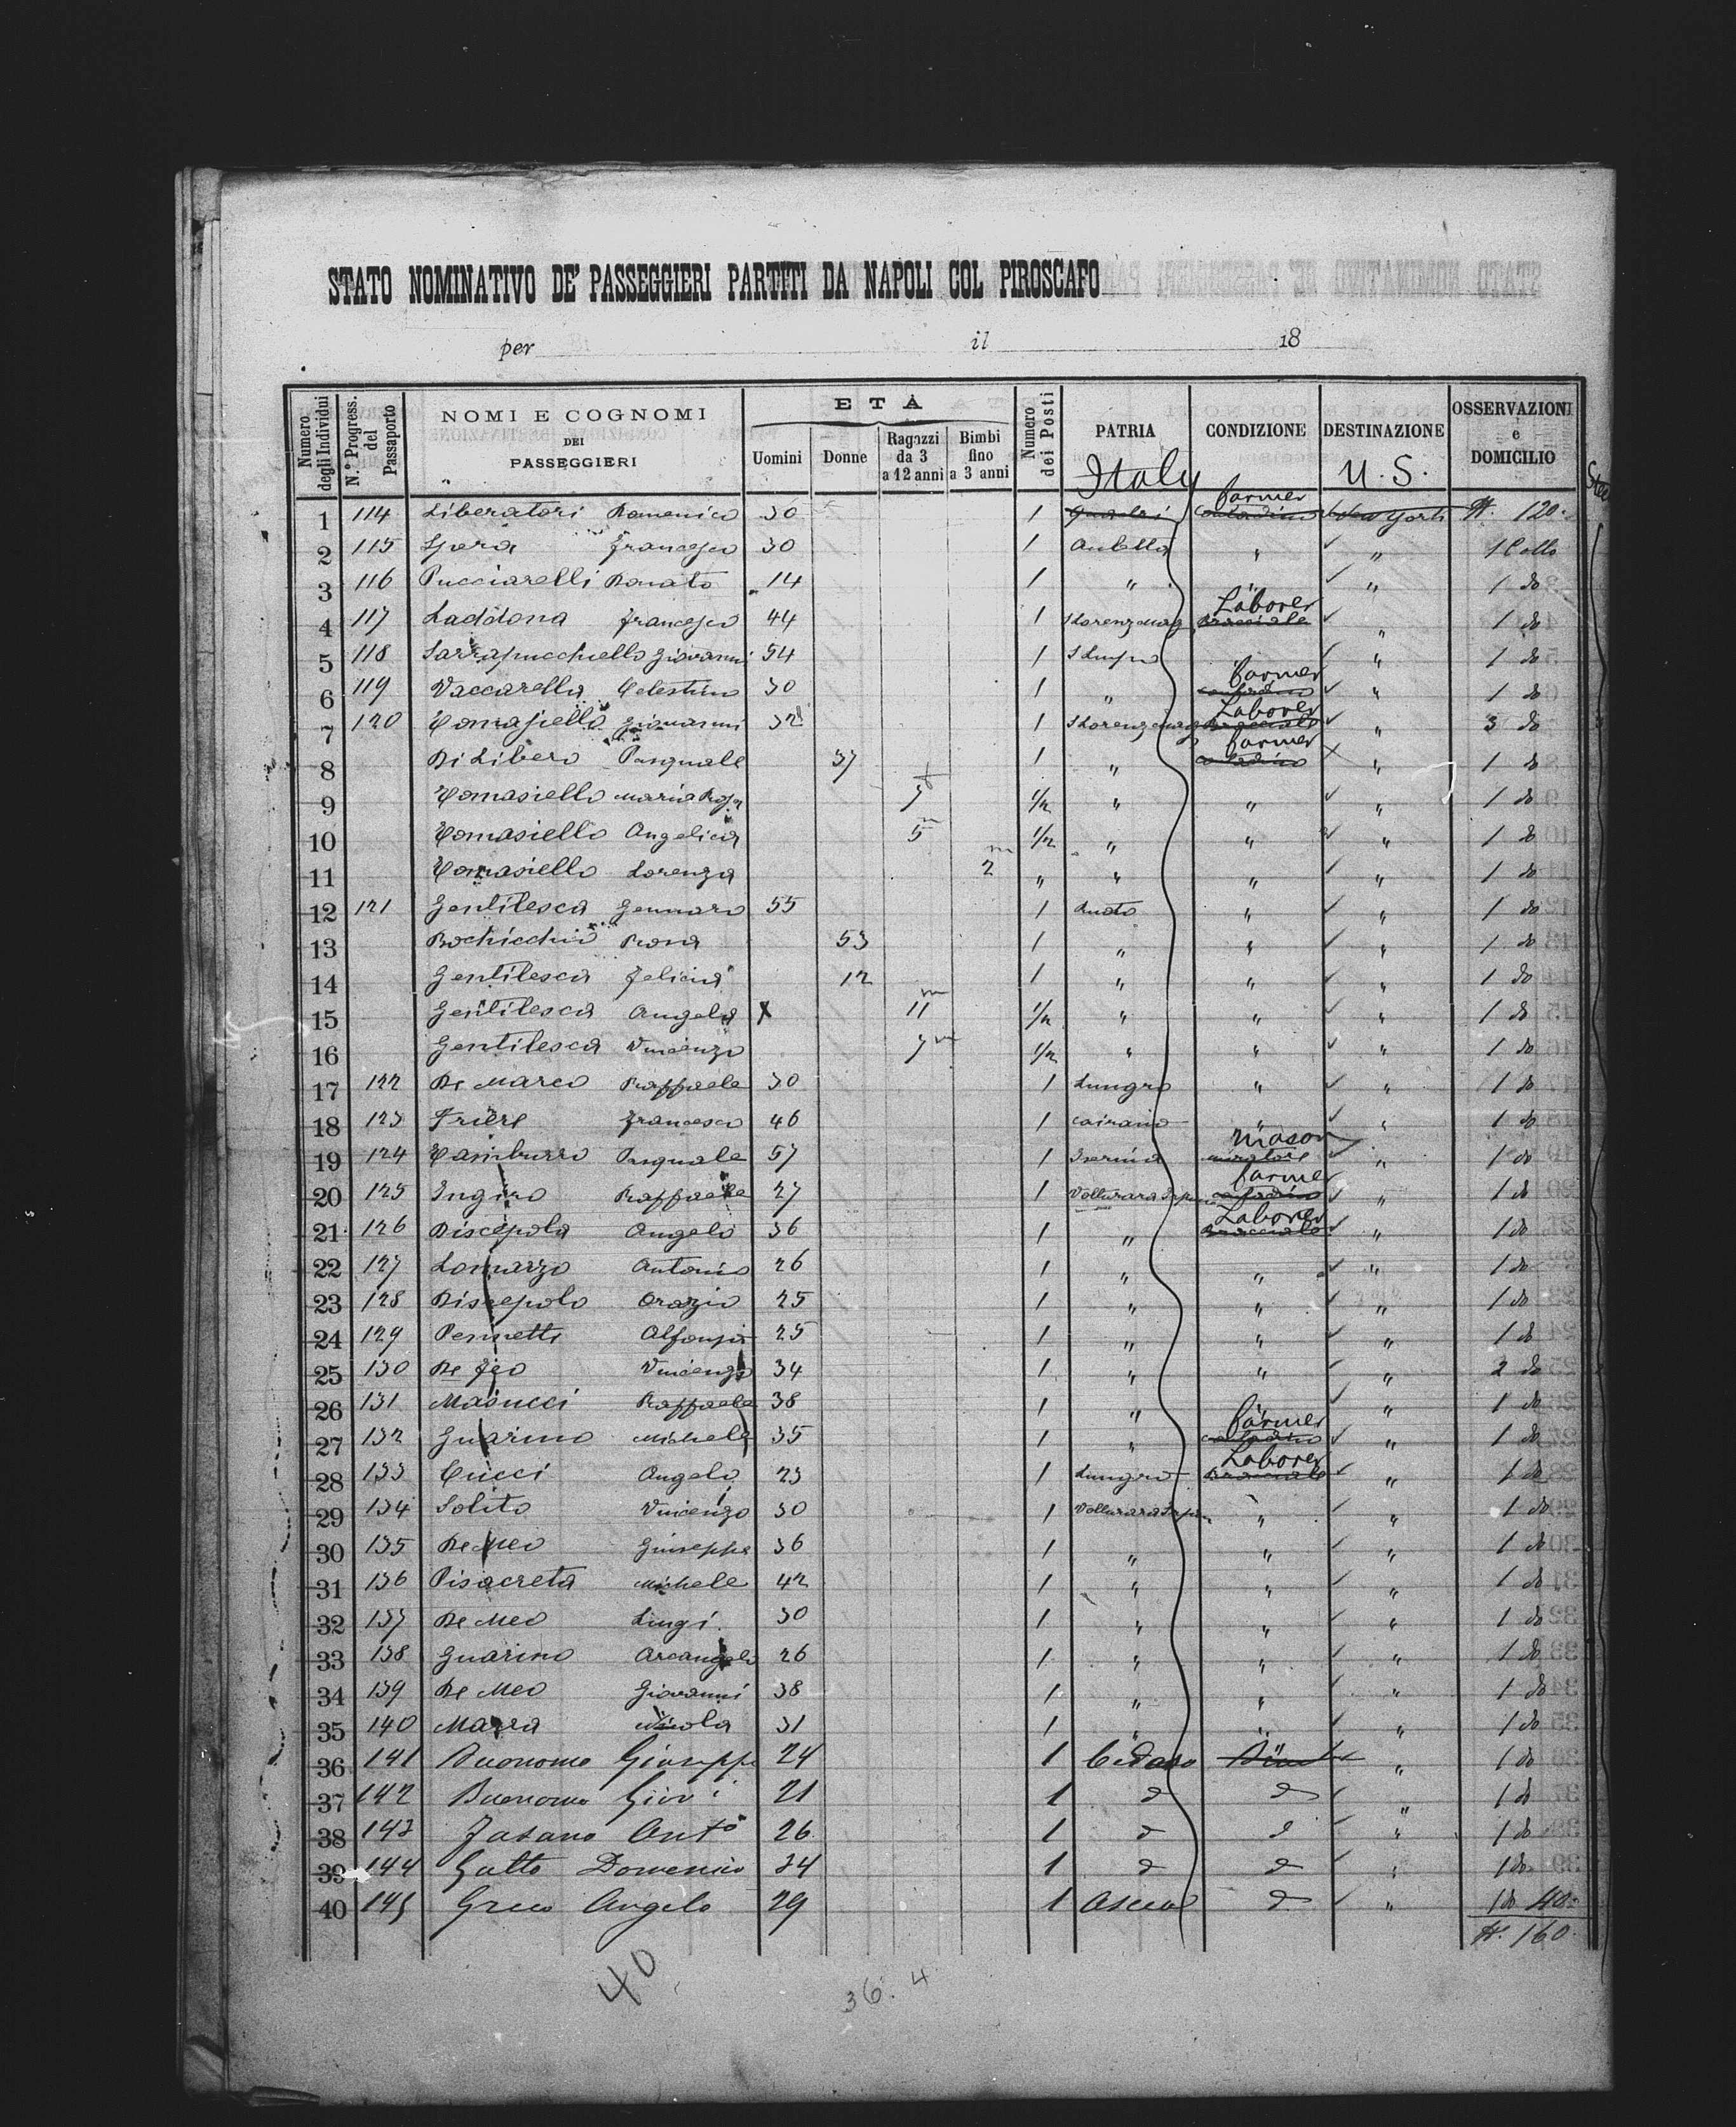 STATO NOMINATIVO DE' PASSEGGIERI PARTITI DA NAPOLI COL PIROSCAFO
per il 18
Numero degli Individui
N.º Progress. del Passaporto
NOMI E COGNOMI DEI PASSEGGIERI
ETÀ
Uomini
Donne
Ragazzi da 3 a 12 anni
Bimbi fino a 3 anni
Numero dei Posti
PATRIA
CONDIZIONE
DESTINAZIONE
OSSERVAZIONI e DOMICILIO
Italy U.S.
farmer
1 114 Liberatori Domenico 30 1 contadino New York 120
2 115 Spera Francesco 30 1 " " 1 Collo
3 116 Pucciarelli Donato 14 1 " " " 1 do
Laborer
4 117 Laddona Francesco 44 1 bracciale " 1 do
5 118 Sarrapucchiello Giovanni 54 1 " 1 do
farmer
6 119 Vaccarella Celestino 30 1 " contadino " 1 do
Laborer
7 120 Tomasiello Giovanni 32 1 bracciale " 3 do
farmer
8 Di Libero Pasquale 37 1 " contadino " 1 do
9 Tomasiello Maria Rosa 7 1/2 " " " 1 do
10 Tomasiello Angelica 5 m 1/2 " " " 1 do
11 Tomasiello Lorenza 2 m " " " " 1 do
12 121 Gentilesca Gennaro 55 1 " " 1 do
13 Bochicchio Rosa 53 1 " " " 1 do
14 Gentilesca Felicia 12 1 " " " 1 do
15 Gentilesca Angela X 11 m 1/2 " " " 1 do
16 Gentilesca Vincenzo 7 m 1/2 " " " 1 do
17 122 De Marco Raffaele 30 1 Lungro " " 1 do
18 123 Friere Francesco 46 1 Cairano " " 1 do
mason
19 124 Tamburro Pasquale 57 1 Isernia muratore " 1 do
farmer
20 125 Ingino Raffaele 27 1 Volturara Irpina contadino " 1 do
Laborer
21 126 Discepola Angelo 36 1 " bracciale " 1 do
22 127 Lomazzo Antonio 26 1 " " " 1 do
23 128 Discepolo Orazio 25 1 " " " 1 do
24 129 Pennetti Alfonso 25 1 " " " 1 do
25 130 De Feo Vincenzo 34 1 " " " 2 do
26 131 Masucci Raffaele 38 1 " " 1 do
farmer
27 132 Guarino Michele 35 1 " contadino " 1 do
Laborer
28 133 Cucci Angelo 23 1 Lungro bracciale 1 do
29 134 Solito Vincenzo 30 1 Volturara Irpina " " 1 do
30 135 De Meo Giuseppe 36 1 " " " 1 do
31 136 Pisacreta Michele 42 1 " " " 1 do
32 137 De Meo Luigi 30 1 " " " 1 do
33 138 Guarino Arcangelo 26 1 " " " 1 do
34 139 De Meo Giovanni 38 1 " " " 1 do
35 140 Marra Nicola 31 1 " " " 1 do
36 141 Buonomo Giuseppe 24 1 " 1 do
37 142 Buonomo Giovi 21 1 d d " 1 do
38 143 Fasano Anto 26 1 d d " 1 do
39 144 Gatto Domenico 34 1 d d " 1 do
40 145 Greco Angelo 29 1 d " 1 do 40
160
40
36. 4